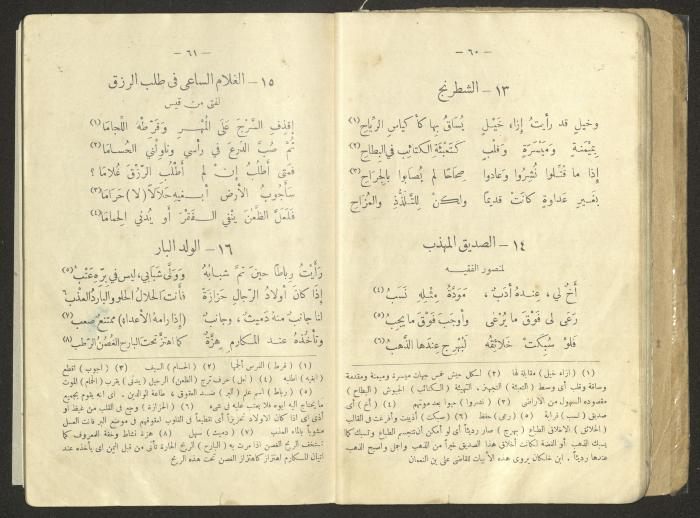 — ٦٠ —
١٣ – الشطرنج
وخيل قد رأيت إزاء خيل يساق بها كأكياس الرياح (١)
بميمنة وميسرة وقلب كتعبئة الكتائب في البطاح (٢)
إذا ما قتلوا نشروا وعادوا صحاحا لم يصابوا بالجراح (٣)
بغير عداوة كانت قديما ولكن للتلذذ والمزاح
١٤ – الصديق المهذب
لمنصور الفقيه
أخ لي، عنده أدب، مودة مثله نسب (٤)
رعى لي فوق ما يرعى وأوجب فوق ما يجب (٥)
فلو سبكت خلائقه لبهرج عندها الذهب (٦)
(١) ازاء خيل) مقابلة لها (٢) لكل جيش خمس جهات ميسرة وميمنة ومقدمة
وساقة وقلب أى وسط (التعبئة) التجهيز، التهيئة (الكتائب) الجيوش (البطاح)
مقصوده السهول من الأراضى (٣) نشروا) حيوا بعد موتهم (٤) أخ) أى
صديق (نسب) قرابة (٥) رعى) حفظ (٦) سبكت) أذيبت وأفرغت فى القالب
(الخلائق) الاخلاق الطباع (بهرج) صار رديئا أى لو أمكن أن تتجسم الطباع وتسبك كما
يسبك الذهب أو الفضة لكانت أخلاق هذا الصديق خيرا من الذهب واجمل وأصبح الذهب
عندها رديئا. ابن خلكان يروى هذه الأبيات للقاضى على بن النعمان
— ٦١ —
١٥ – الغلام الساعى فى طلب الرزق
لفتى من قيس
إقذف السرج على المهر وقرطه اللجاما (١)
ثم صب الدرع في رأسي وناولني الحساما (٢)
فمتى أطلب إن لم أطلب الرزق غلاما؟
سأجوب الأرض أبغيه حلالا (لا) حراما (٣)
فلعل الظعن ينفي الفقر أو يدني الحماما (٤)
١٦ – الولد البار
رأيت رباطا حين تم شبابه وولى شبابي، ليس في بره عتب (٥)
إذا كان أولاد الرجال حزازة فأنت الحلال الحلو والبارد العذب ٦
لنا جانب منه دميث، وجانب (إذا رامه الأعداء) ممتنع صعب (٧)
وتأخذه عند المكارم هزة كما اهتز تحت البارح الغصن الرطب (٨)
(١) قرط) الفرس ألجمها (٢) (الحسام) السيف (٣) (أجوب) اقطع
(ابغيه) اطلبه (٤) (لعل) حرف ترج (الظعن) الرحيل (يدنى) يقرب (الحمام) الموت
(٥) (رباط) اسم علم (البر) ضد العقوق، طاعة الوالدين. أى انه يقوم بجميع
ما يحتاج اليه ابوه فلا يعتب عليه فى شىء (٦) (الحزازة) وجع فى القلب من غيظ او
أذى
مشوبا بالماء العذب (٧) (دميث) سهل (٨) هزة نشاط وخفة للمعروف كما
تستخف الريح الغصن اذا مرت به (البارح) الريح الحارة تأتى من قبل اليمن اى يأخذه عند
اتيان المكارم اهتزاز كاهتزاز الغصن تحت هذه الريح